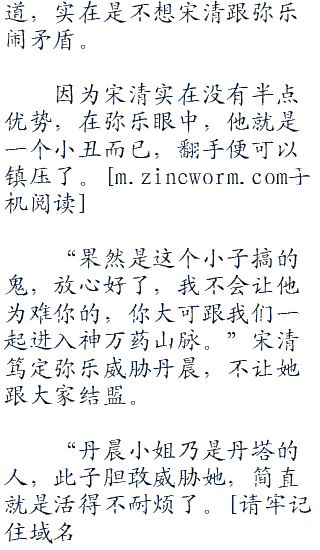 道，实在是不想宋清跟弥乐
闹矛盾。
因为宋清实在没有半点
优势，在弥乐眼中，他就是
一个小丑而已，翻手便可以
镇压了。[m.zincworm.com手
机阅读]
“果然是这个小子搞的
鬼，放心好了，我不会让他
为难你的，你大可跟我们一
起进入神万药山脉。”宋清
笃定弥乐威胁丹晨，不让她
跟大家结盟。
“丹晨小姐乃是丹塔的
人，此子胆敢威胁她，简直
就是活得不耐烦了。[请牢记
住域名